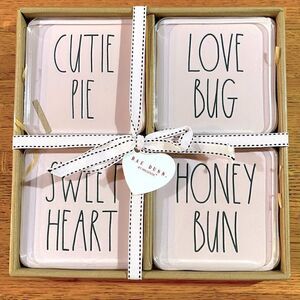 CUTIE
PIE
LOVE
BUG
RAE DUNN
SWEET
HEART
HONEY
BUN